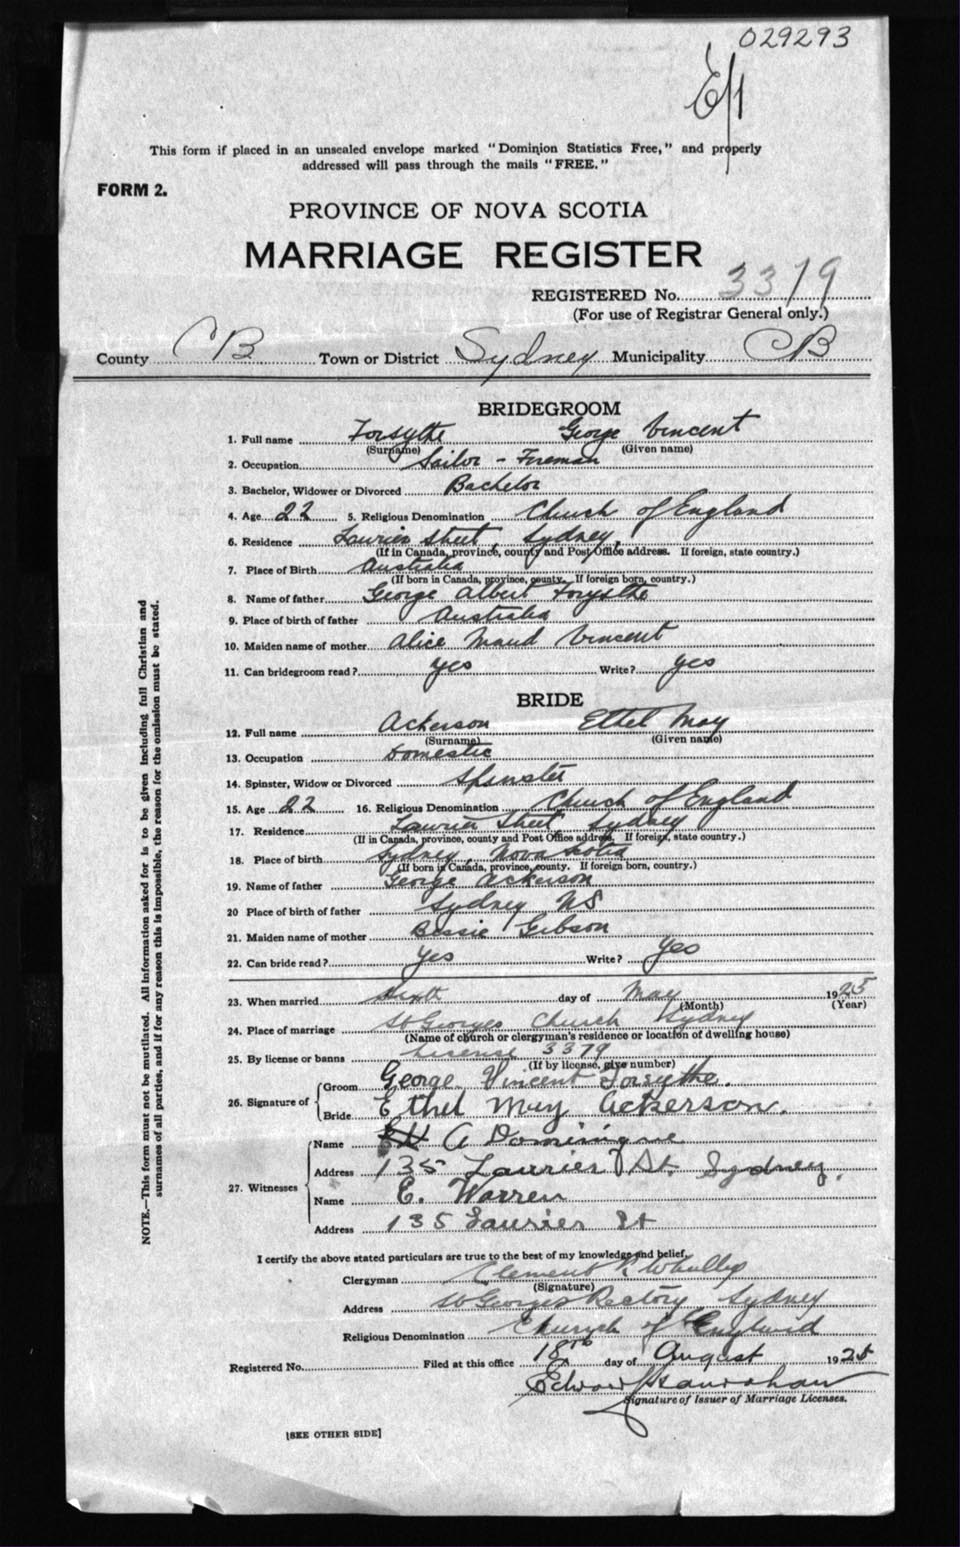 029293
This form if placed in an unsealed envelope marked "Dominion Statistics Free," and properly
addressed will pass through the mails "FREE."
FORM 2.
PROVINCE OF NOVA SCOTIA
MARRIAGE REGISTER
REGISTERED No. 3319
(For use of Registrar General only.)
County CB Town or District Sydney Municipality CB
BRIDEGROOM
1. Full name Forsythe George Vincent
(Surname) (Given name)
2. Occupation Sailor - Fireman
3. Bachelor, Widower or Divorced Bachelor
4. Age 22 5. Religious Denomination Church of England
6. Residence Laurier Street, Sydney,
(If in Canada, province, county and Post Office address. If foreign, state country.)
7. Place of Birth Australia
(If born in Canada, province, county. If foreign born, country.)
8. Name of father George Albert Forsythe
9. Place of birth of father Australia
10. Maiden name of mother Alice Maud Vincent
11. Can bridegroom read? yes Write? yes
BRIDE
12. Full name Ackerson Ethel May
(Surname) (Given name)
13. Occupation Domestic
14. Spinster, Widow or Divorced Spinster
15. Age 22 16. Religious Denomination Church of England
17. Residence Laurier Street, Sydney
(If in Canada, province, county and Post Office address. If foreign, state country.)
18. Place of birth Sydney, Nova Scotia
(If born in Canada, province, county. If foreign born, country.)
19. Name of father George Ackerson
20 Place of birth of father Sydney NS
21. Maiden name of mother Bessie Gibson
22. Can bride read? Yes Write? Yes
23. When married Sixth day of May 1925
(Month) (Year)
24. Place of marriage St Georges Church Sydney
(Name of church or clergyman's residence or location of dwelling house)
25. By license or banns License 3379
(If by license, give number)
26. Signature of
Groom George Vincent Forsythe.
Bride Ethel May Ackerson.
27. Witnesses
Name A Dominique
Address 135 Laurier St. Sydney.
Name E. Warren
Address 135 Laurier St
I certify the above stated particulars are true to the best of my knowledge and belief.
Clergyman Clement
(Signature)
Address St Georges Rectory Sydney
Religious Denomination Church of England
Registered No. Filed at this office 18th day of August 1925
Signature of Issuer of Marriage Licenses.
[SEE OTHER SIDE]
NOTE.—This form must not be mutilated. All information asked for is to be given including full Christian and
surnames of all parties, and if for any reason this is impossible, the reason for the omission must be stated.